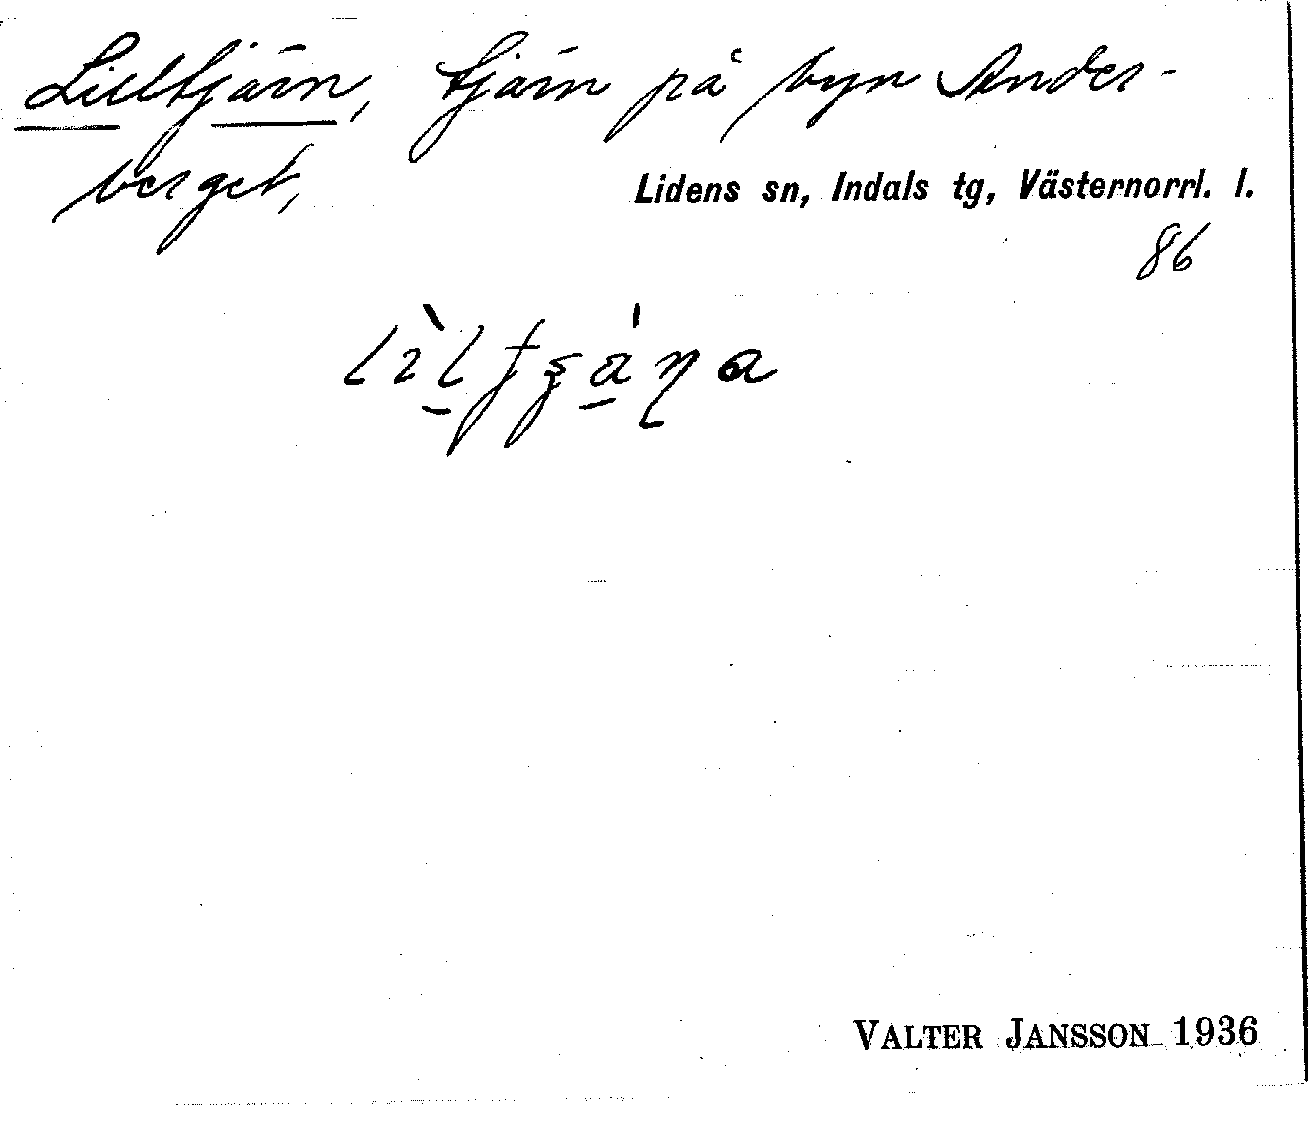 Lilltjärn, tjärn på byn Ander-
berget,
Lidens sn, Indals tg, Västernorrl. l.
86
VALTER JANSSON 1936